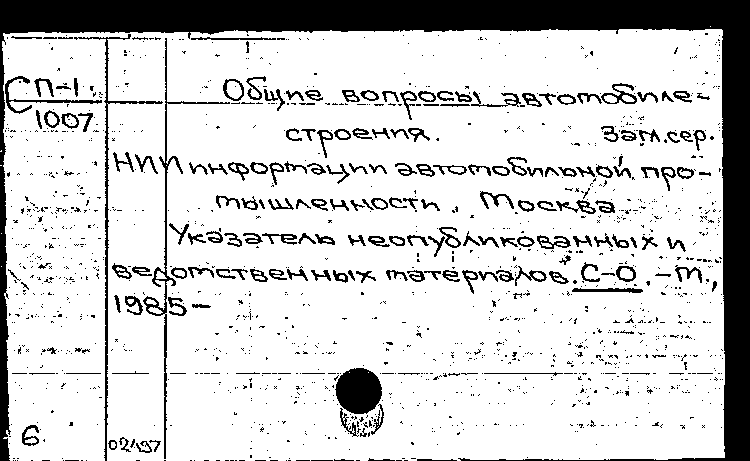 СП-1. Общие вопросы автомобиле-
1007 строения. Загл.сер.
НИИ информации автомобильной про-
мышленности, Москва
Указатель неопубликованных и
ведомственных материалов. С-О. -М.,
1985-
6